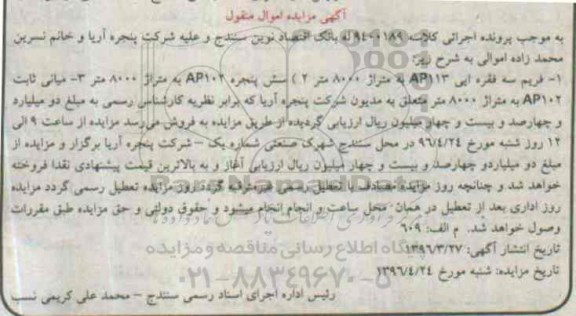 آگهی مزایده اموال منقول
به موجب پرونده اجرائی کلاسه ۹۴۰۰۱۸۹ له بانک اقتصاد نوین سنندج و علیه شرکت پنجره آریا و خانم نسرین
محمد زاده اموالی به شرح زیر:
۱- فریم سه فقره ایی AP۱۱۳ به متراژ ۸۰۰۰ متر ۲ ) سش پنجره AP۱۰۲ به متراژ ۸۰۰۰ متر ۳- میانی ثابت
AP۱۰۲ به متراژ ۸۰۰۰ متر متعلق به مدیون شرکت پنجره آریا که برابر نظریه کارشناس رسمی به مبلغ دو میلیارد
و چهارصد و بیست و چهار میلیون ریال ارزیابی گردیده از طریق مزایده به فروش می‌رسد مزایده از ساعت ۹ الی
۱۲ روز شنبه مورخ ۹۶/۴/۲۴ در محل سنندج شهرک صنعتی شماره یک – شرکت پنجره آریا برگزار و مزایده از
مبلغ دو میلیاردو چهارصد و بیست و چهار میلیون ریال ارزیابی آغاز و به بالاترین قیمت پیشنهادی نقدا فروخته
خواهد شد و چنانچه روز مزایده مصادف با تعطیل رسمی غیرمترقبه گردد روز مزایده تعطیل رسمی گردد مزایده
روز اداری بعد از تعطیل در همان محل ساعت و انجام انجام میشود و حقوق دولتی و حق مزایده طبق مقررات
وصول خواهد شد. م الف: ۶۰۹
تاریخ انتشار آگهی: ۱۳۹۶/۳/۲۷
پایگاه اطلاع رسانی مناقصه و مزایده
تاریخ مزایده: شنبه مورخ ۱۳۹۶/۴/۲۴
۰۲۱-۸۸۳۴۹۶۷۰-۵
رئیس اداره اجرای اسناد رسمی سنندج – محمد علی کریمی نسب